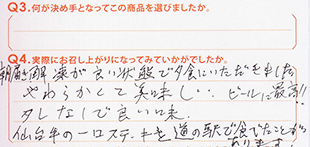 Q3.何が決め手となってこの商品を選びましたか。
Q4.実際にお召し上がりになってみていかがでしたか。
朝届き 凍が良い状態で夕食にいただきました
やわらかくて美味しい。ビールに最高!!
タレなしで良い味。
仙台牛の一口ステーキを道の駅で食べたことが
あります